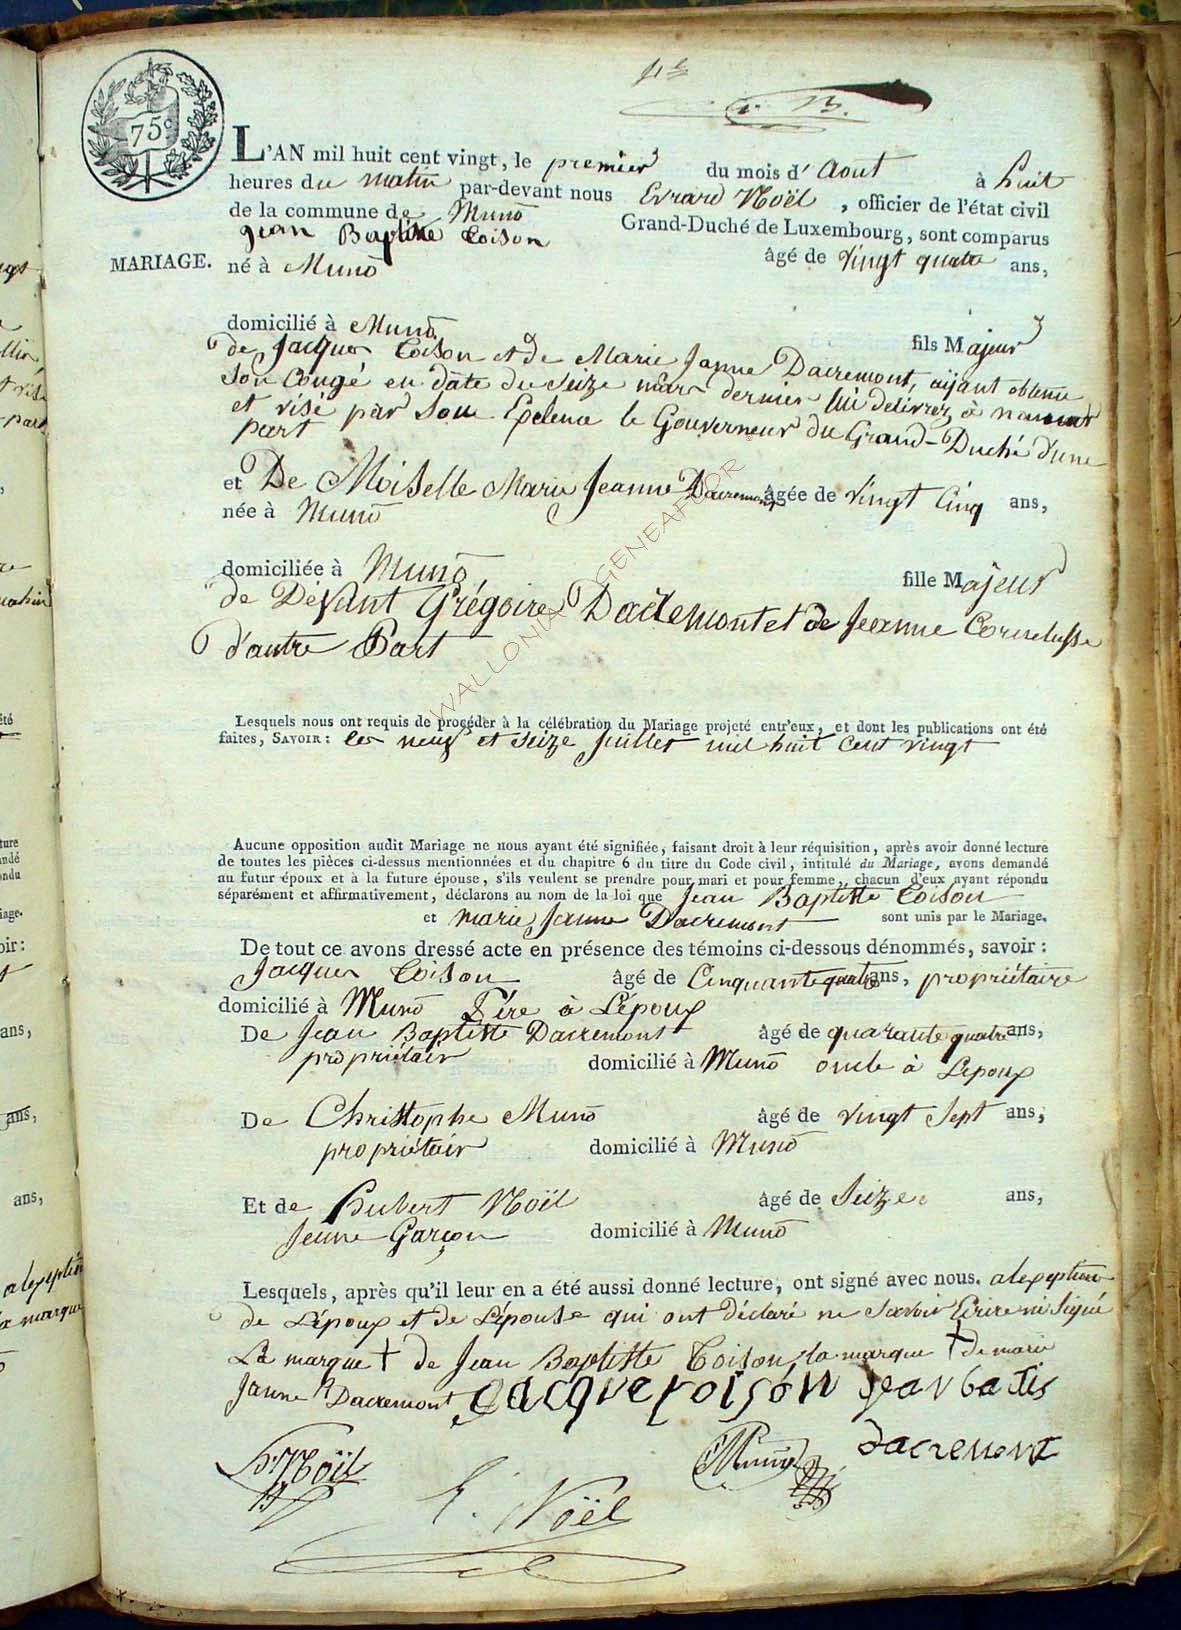 75c
L'AN mil huit cent vingt, le premier du mois d'Aout à huit
heures du matin par-devant nous Evrard Noël, officier de l'état civil
de la commune de Muno Grand-Duché de Luxembourg, sont comparus
Jean Baptiste Toison âgé de vingt quatre ans,
MARIAGE. né à Muno
domicilié à Muno fils Majeur
de Jacques Toison et de Marie Janne Dacremont, aÿant obtenu
son Congé en date du seize mars dernier lui delivrez à namur
et visé par son Exelence le Gouverneur du Grand-Duché d'une
part
et De Moiselle Marie Jeanne Dacremont âgée de vingt Cinq ans,
née à Muno
domiciliée à Muno fille Majeur
de Dévant Grégoire Dacremont et de Jeanne
d'autre Part
Lesquels nous ont requis de procéder à la célébration du Mariage projeté entr'eux, et dont les publications ont été
faites, SAVOIR: les neuf et seize Juillet mil huit Cent vingt
Aucune opposition audit Mariage ne nous ayant été signifiée, faisant droit à leur réquisition, après avoir donné lecture
de toutes les pièces ci-dessus mentionnées et du chapitre 6 du titre du Code civil, intitulé du Mariage, avons demandé
au futur époux et à la future épouse, s'ils veulent se prendre pour mari et pour femme, chacun d'eux ayant répondu
séparément et affirmativement, déclarons au nom de la loi que Jean Baptiste Toison
et marie Janne Dacremont sont unis par le Mariage.
De tout ce avons dressé acte en présence des témoins ci-dessous dénommés, savoir:
Jacques Toison âgé de Cinquante quatre ans, propriétaire
domicilié à Muno Pére à L'époux
De Jean Baptiste Dacremont âgé de quarante quatre ans,
propriétair domicilié à Muno oncle à L'époux
De Christophe Muno âgé de vingt Sept ans,
propriétair domicilié à Muno
Et de Hubert Noël âgé de Seize ans,
Jeune Garçon domicilié à Muno
Lesquels, après qu'il leur en a été aussi donné lecture, ont signé avec nous. a lexeption
de L'époux et de L'épouse qui ont déclaré ne savoir Ecrire ni Signé
La marque † de Jean Baptiste Toison, la marque † de marie
Janne Dacremont Jacque toisón Jean batis
dacremont
h. Noël
C Muno
E. Noël
WALLONIA GENEAFOOR